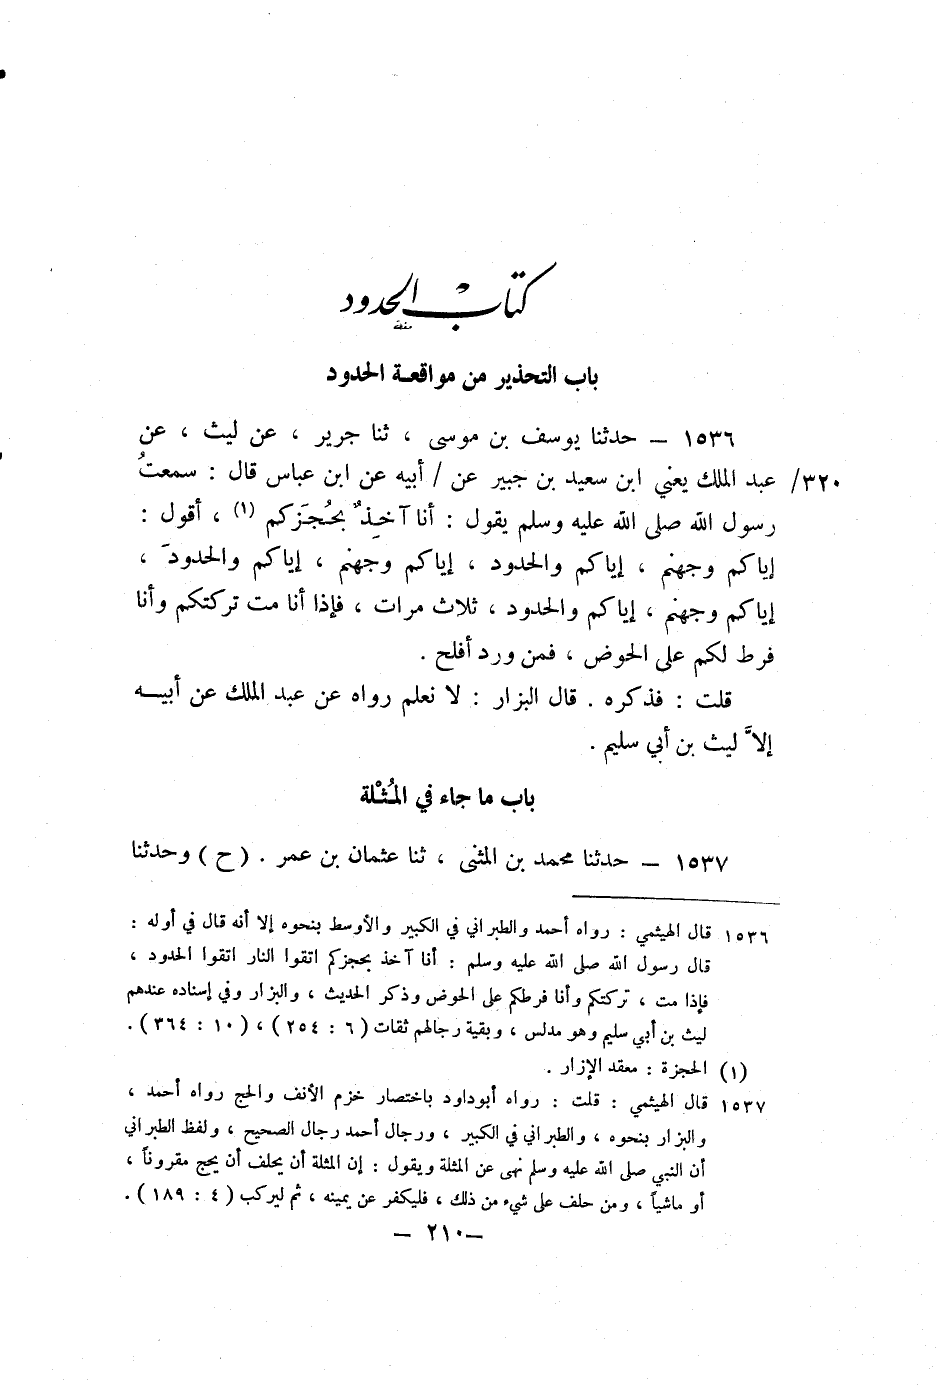 كتاب الحدود
باب التحذير من مواقعة الحدود
١٥٣٦ – حدثنا يوسف بن موسى ، ثنا جرير ، عن ليث ، عن
٣٢٠/ عبد الملك يعني ابن سعيد بن جبير عن / أبيه عن ابن عباس قال : سمعتُ
رسول الله صلى الله عليه وسلم يقول : أنا آخِذٌ بحُجَزكم (١) ، أقول :
إياكم وجهنم ، إياكم والحدود ، إياكم وجهنم ، إياكم والحدودَ ،
إياكم وجهنم ، إياكم والحدود ، ثلاث مرات ، فإذا أنا مت تركتكم وأنا
فرط لكم على الحوض ، فمن ورد أفلح .
قلت : فذكره . قال البزار : لا نعلم رواه عن عبد الملك عن أبيــه
إلاَّ ليث بن أبي سليم .
باب ما جاء في المُثْلة
١٥٣٧ – حدثنا محمد بن المثنى ، ثنا عثمان بن عمر . ( ح ) وحدثنا
١٥٣٦ قال الهيثمي : رواه أحمد والطبراني في الكبير والأوسط بنحوه إلا أنه قال في أوله :
قال رسول الله صلى الله عليه وسلم : أنا آخذ بحجزكم اتقوا النار اتقوا الحدود ،
فإذا مت ، تركتكم وأنا فرطكم على الحوض وذكر الحديث ، والبزار وفي إسناده عندهم
ليث بن أبي سليم وهو مدلس ، وبقية رجالهم ثقات ( ٦ : ٢٥٤ ) ، ( ١٠ : ٣٦٤ ) .
(١) الحجزة : معقد الإزار .
١٥٣٧ قال الهيثمي : قلت : رواه أبوداود باختصار خزم الأنف والحج رواه أحمد ،
والبزار بنحوه ، والطبراني في الكبير ، ورجال أحمد رجال الصحيح ، ولفظ الطبراني
أن النبي صلى الله عليه وسلم نهى عن المثلة ويقول : إن المثلة أن يحلف أن يحج مقروناً ،
أو ماشياً ، ومن حلف على شيء من ذلك ، فليكفر عن يمينه ، ثم ليركب ( ٤ : ١٨٩ ) .
– ٢١٠ –